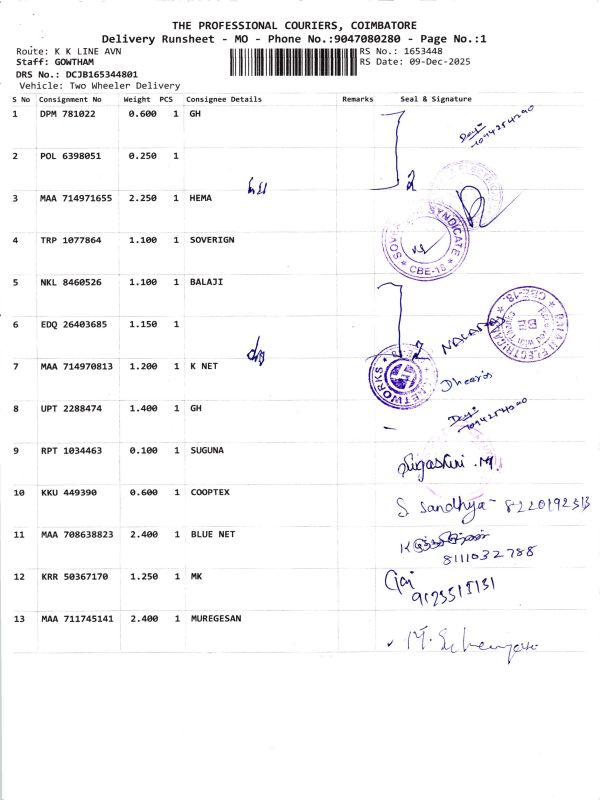 THE PROFESSIONAL COURIERS, COIMBATORE
Delivery Runsheet - MO - Phone No.:9047080280 - Page No.:1
Route: K K LINE AVN RS No.: 1653448
Staff: GOWTHAM RS Date: 09-Dec-2025
DRS No.: DCJB165344801
Vehicle: Two Wheeler Delivery
S No Consignment No Weight PCS Consignee Details Remarks Seal & Signature
1 DPM 781022 0.600 1 GH
2 POL 6398051 0.250 1
2
3 MAA 714971655 2.250 1 HEMA
4 TRP 1077864 1.100 1 SOVERIGN
SYNDICATE
* CBE-18 *
5 NKL 8460526 1.100 1 BALAJI
CBE-18.
BE
6 EDQ 26403685 1.150 1
2
7 MAA 714970813 1.200 1 K NET
NETWORKS
8 UPT 2288474 1.400 1 GH
9 RPT 1034463 0.100 1 SUGUNA
10 KKU 449390 0.600 1 COOPTEX
S Sandhya - 8220192513
11 MAA 708638823 2.400 1 BLUE NET
8111032788
12 KRR 50367170 1.250 1 MK
13 MAA 711745141 2.400 1 MUREGESAN